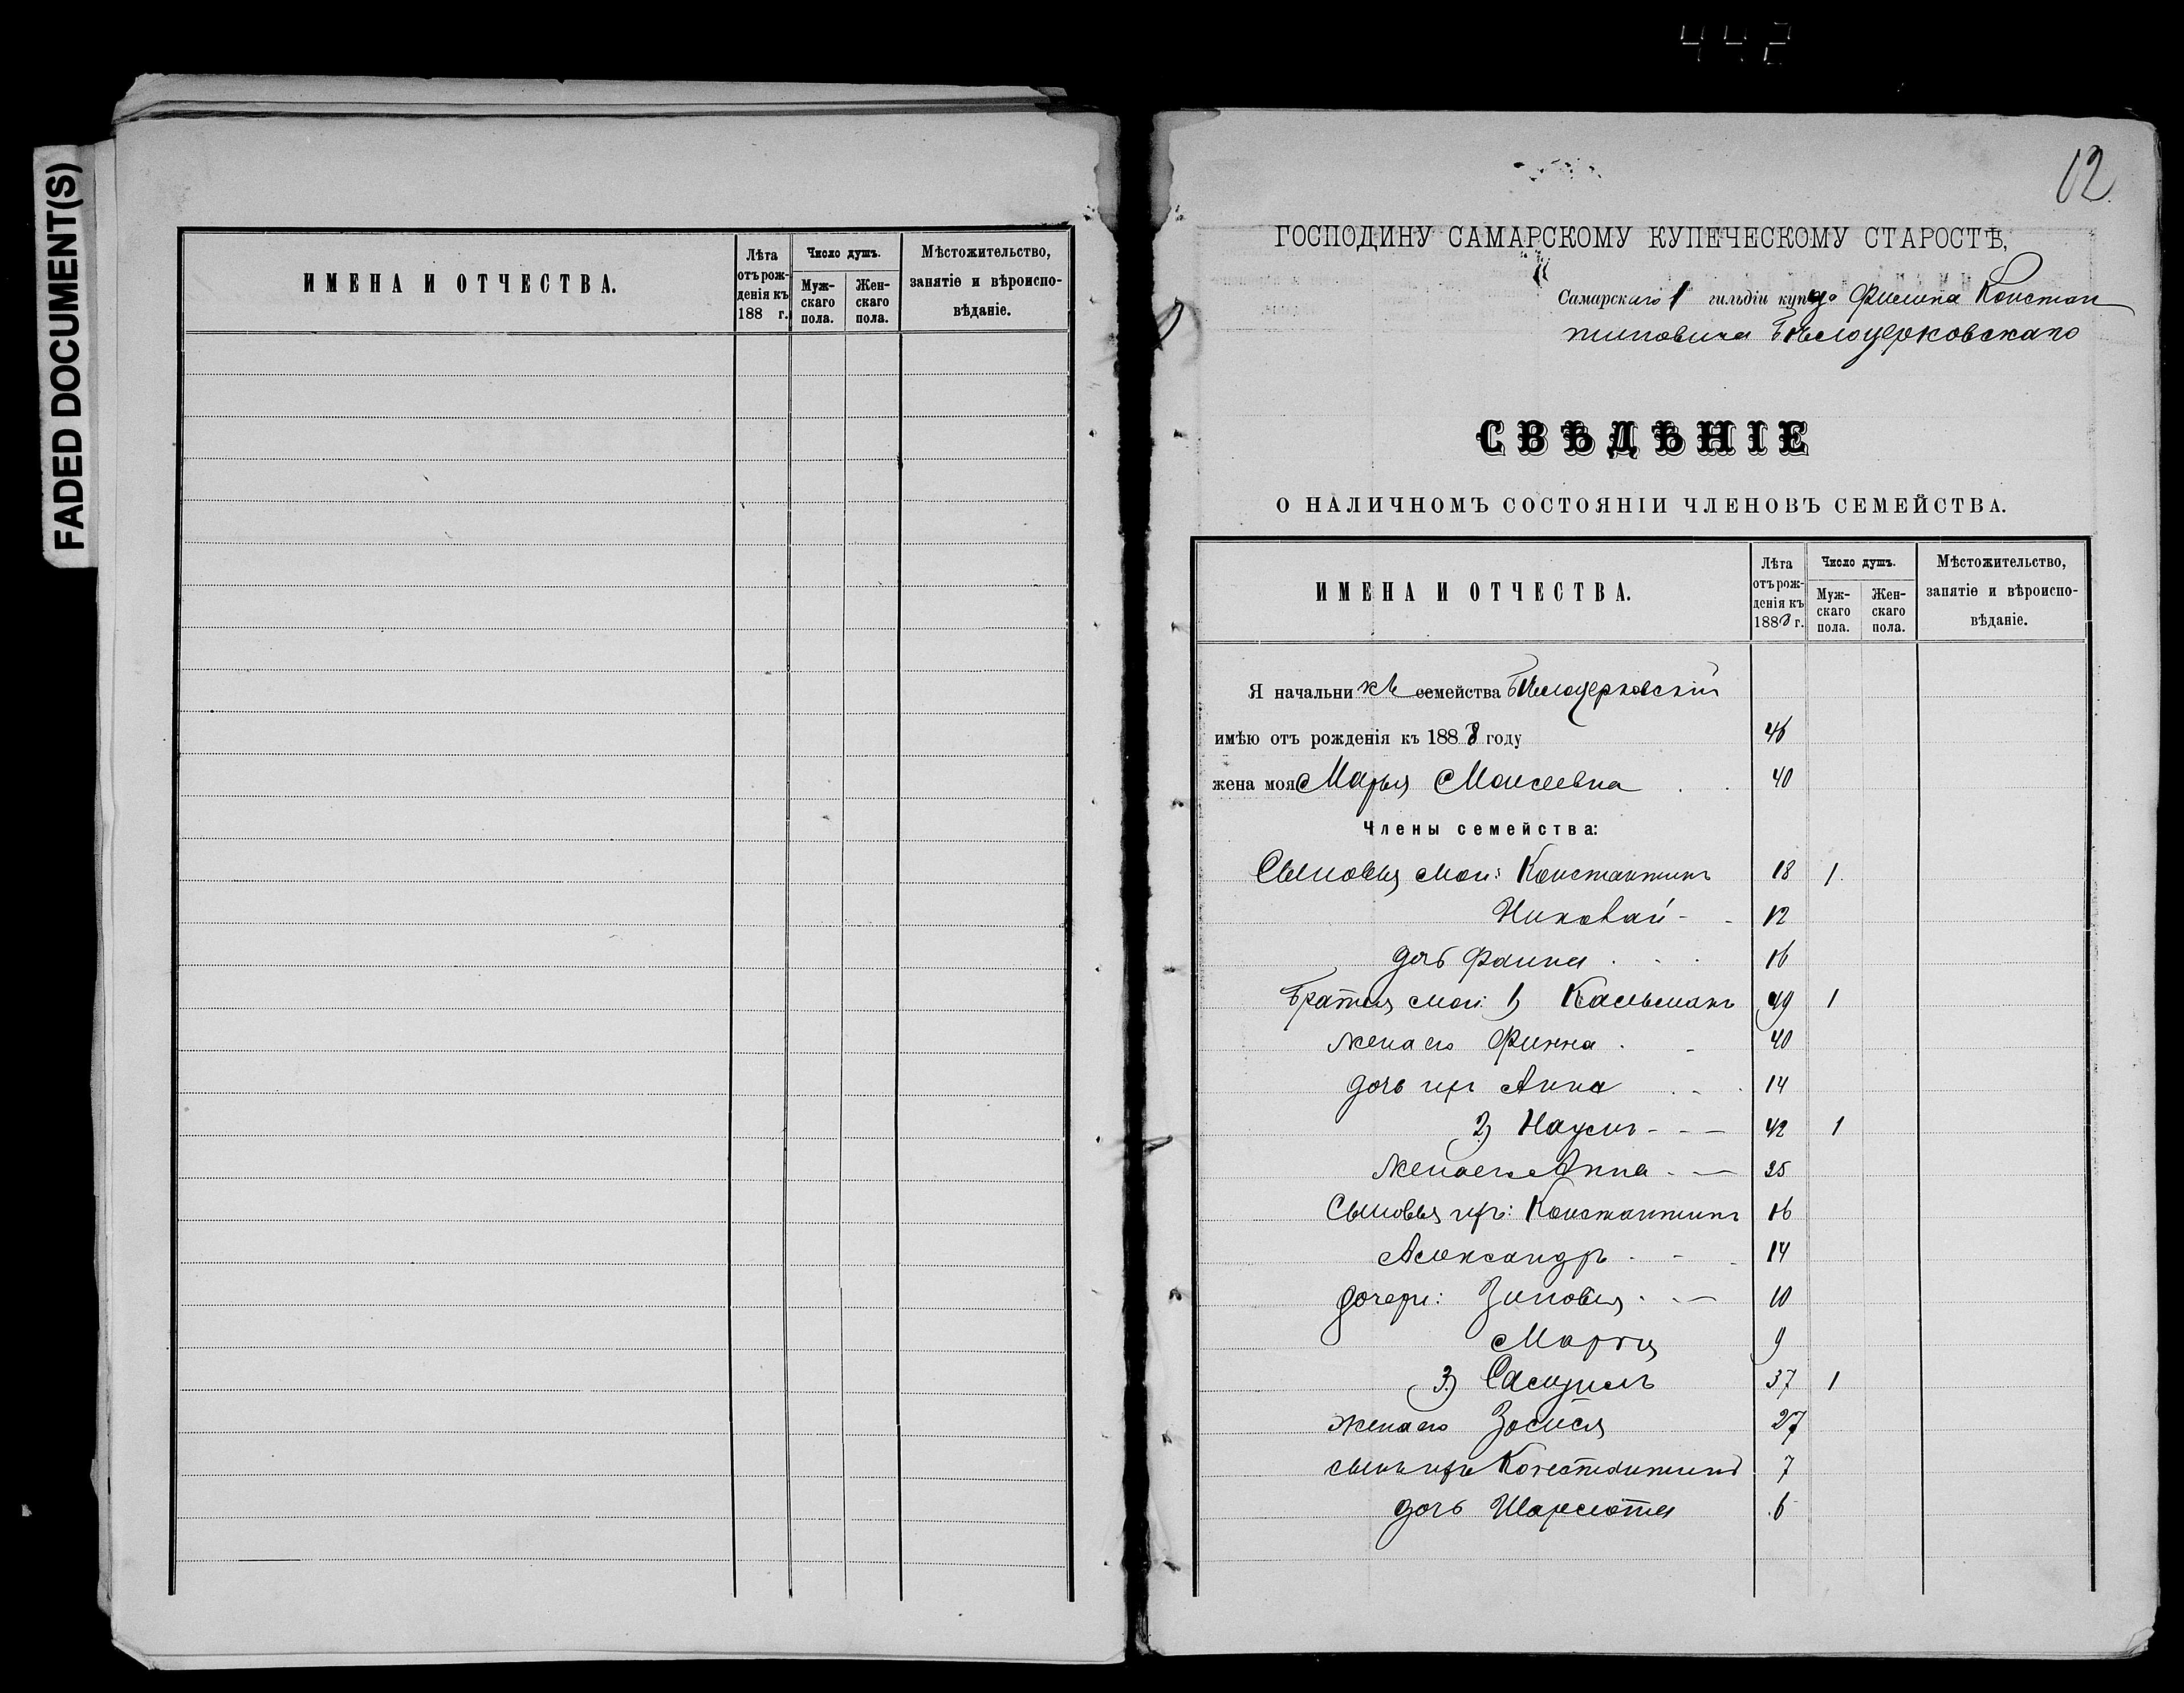 442
FADED DOCUMENT(S)
ИМЕНА И ОТЧЕСТВА.
Лѣта отъ рожденія къ 188 г.
Число душъ.
Мужскаго пола.
Женскаго пола.
Мѣстожительство, занятіе и вѣроисповѣданіе.
12
ГОСПОДИНУ САМАРСКОМУ КУПЕЧЕСКОМУ СТАРОСТѢ,
Самарскаго 1 гильдіи купца Констан
тиновича Бѣлоцерковскаго
СВѢДѢНІЕ
О НАЛИЧНОМЪ СОСТОЯНІИ ЧЛЕНОВЪ СЕМЕЙСТВА.
ИМЕНА И ОТЧЕСТВА.
Лѣта отъ рожденія къ 1888 г.
Число душъ.
Мужскаго пола.
Женскаго пола.
Мѣстожительство, занятіе и вѣроисповѣданіе.
Я начальникъ семейства Бѣлоцерковскій
имѣю отъ рожденія къ 1888 году 46
жена моя Марья Моисеевна 40
Члены семейства:
Сыновья мои: Константинъ 18 1
Николай 12
дочь Фанна 16
Братья мои: 1) Кальманъ 49 1
жена его Финна 40
дочь ихъ Анна 14
2) Наумъ 42 1
жена его Анна 35
Сыновья ихъ: Константинъ 16
Александръ 14
дочери: Зиновья 10
Марья 9
3) Самуилъ 37 1
жена его 27
сынъ ихъ Константинъ 7
дочь Шарлота 6